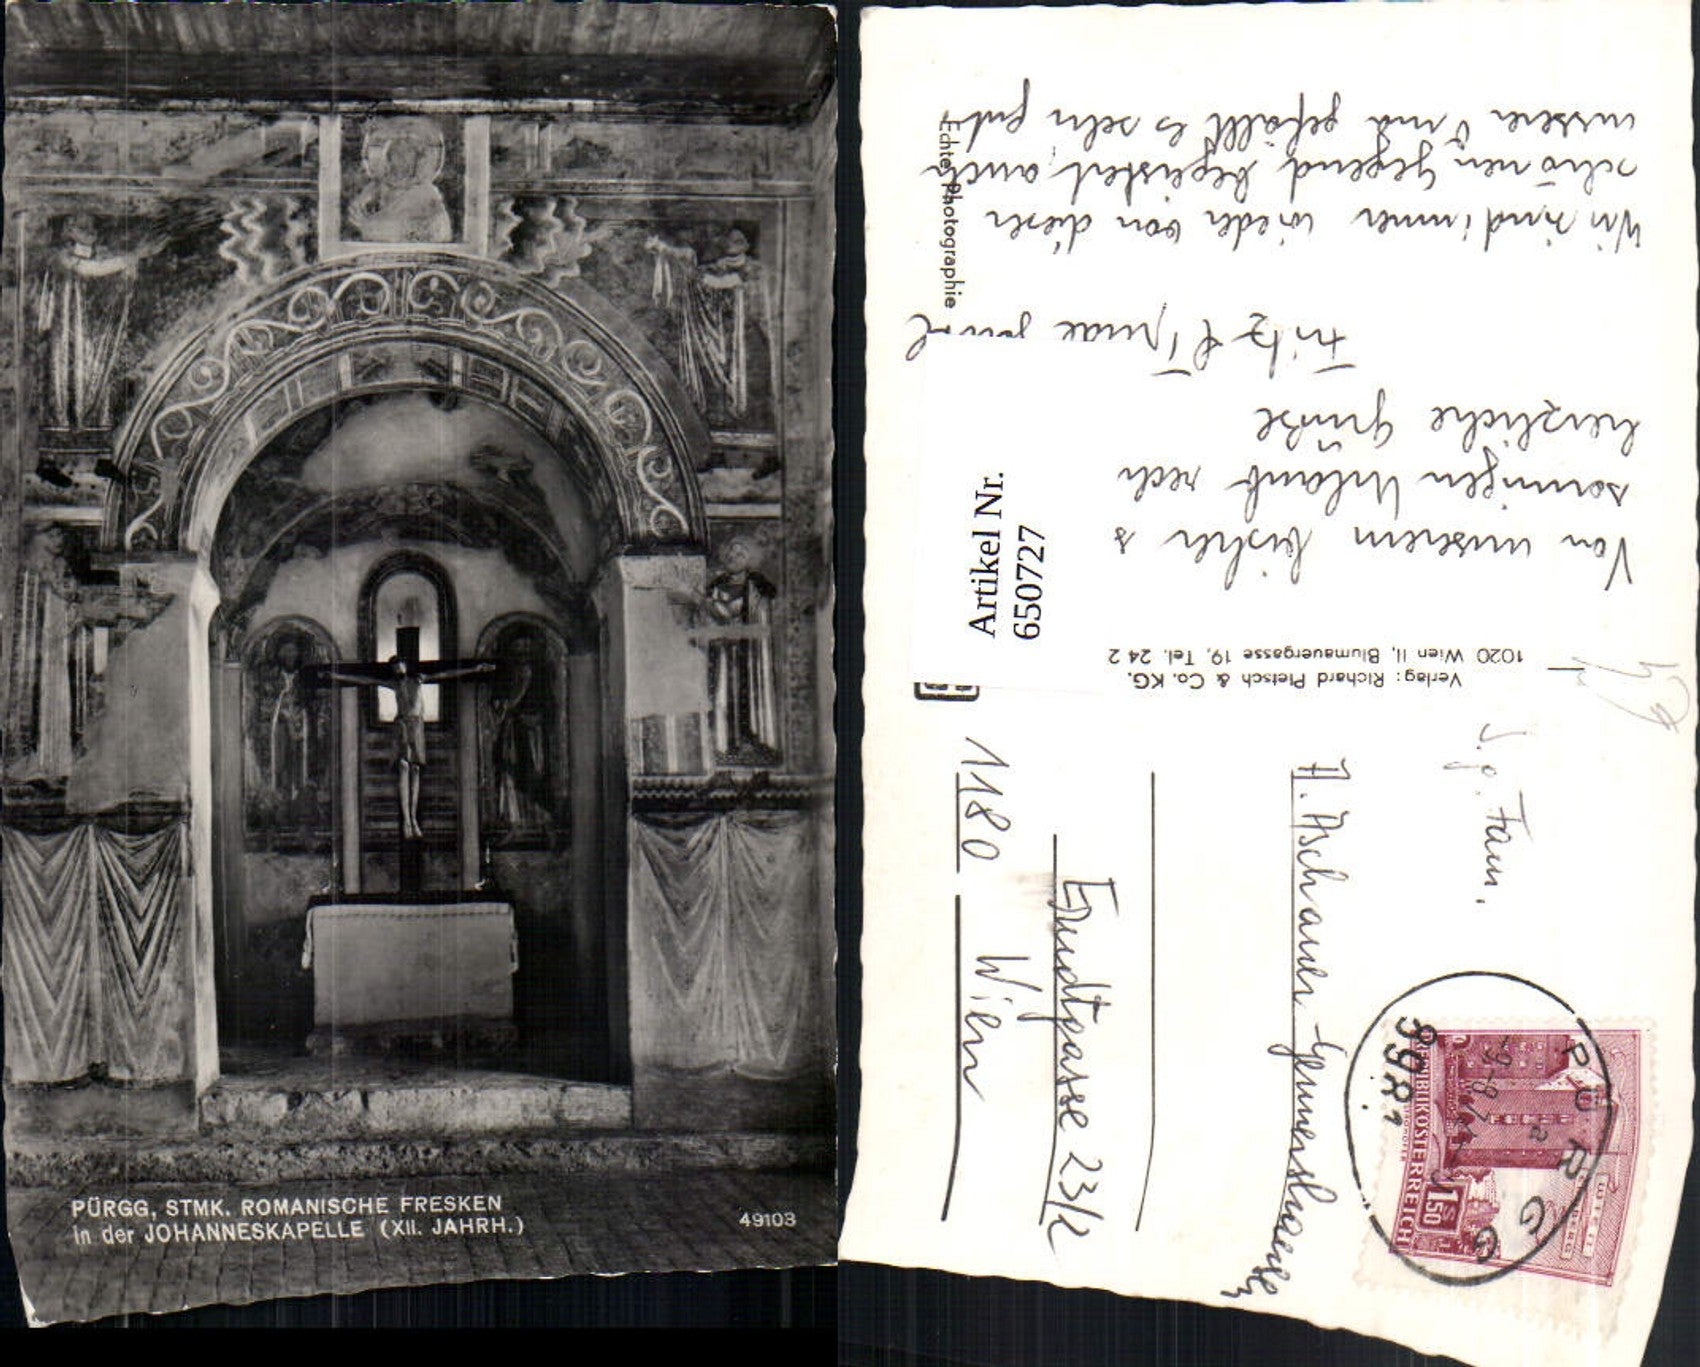 PÜRGG, STMK. ROMANISCHE FRESKEN
in der JOHANNESKAPELLE (XII. JAHRH.)
49103
Von unserem bisher s
sonnigen Urlaub rech
herzliche Grüße
Fritz
Wir sind immer wieder von dieser
schönen Gegend begeistert, auch
unserer Oma gefällt es sehr gut.
Echte Photographie
Artikel Nr.
650727
Verlag: Richard Pietsch & Co. KG.
1020 Wien II, Blumauergasse 19, Tel. 24 2
S. g. Fam.
A. Aschauer
Gymnasiumstraße
23/2
1180 Wien
PÜRGG
8981
REPUBLIK ÖSTERREICH
S 1.50